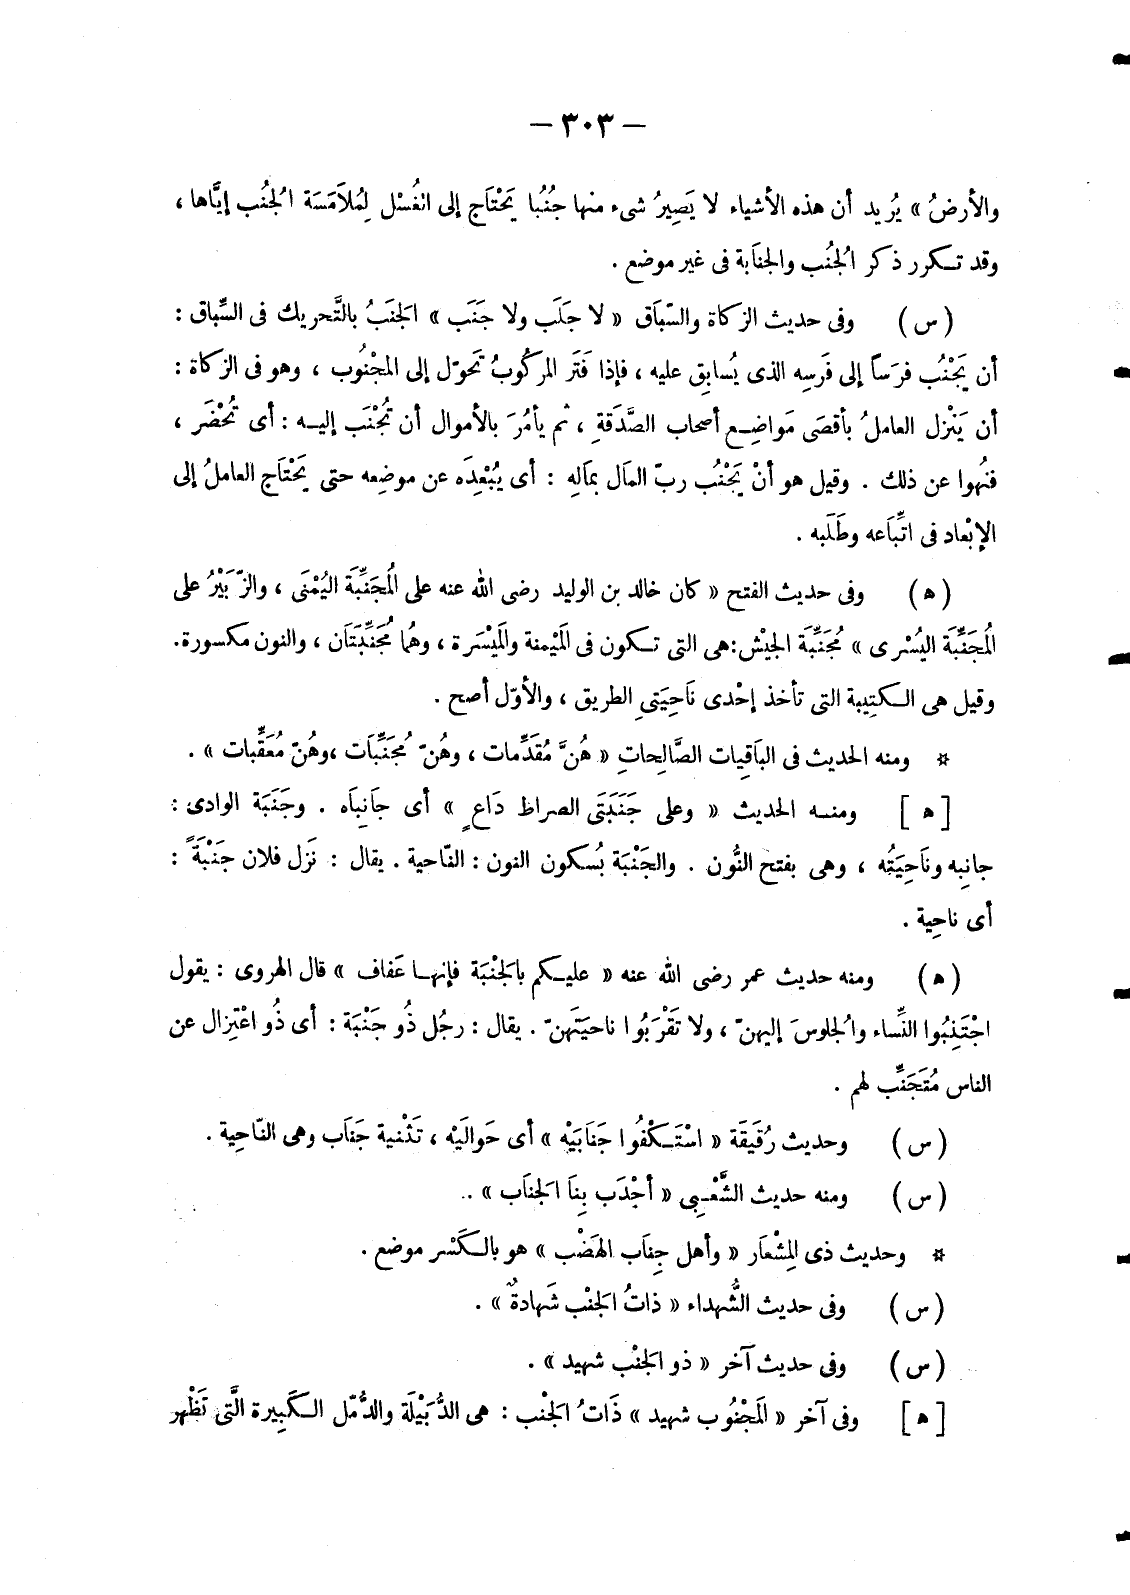 — ٣٠٣ —
والأرضُ » يُريد أن هذه الأشياء لا يَصِيرُ شىء منها جُنُبًا يَحْتَاج إلى الغُسْل لِمُلاَمَسَة الجُنُب إيَّاها ،
وقد تكرر ذكر الجُنُب والجنَابة فى غير موضع .
( س ) وفى حديث الزكاة والسّبَاق « لا جَلَب ولا جَنَب » الجَنَبُ بالتَّحريك فى السِّباق :
أن يَجْنُب فرَساً إلى فَرَسِه الذى يُسابِق عليه ، فإذا فَتَر المركُوبُ تحَوّل إلى المجْنُوب ، وهو فى الزكاة :
أن يَنْزل العاملُ بأقصَى مَواضِع أصحاب الصَّدَقةِ ، ثم يأمُرَ بالأموال أن تُجْنَب إليه : أى تُحْضَر ،
فنُهوا عن ذلك . وقيل هو أنْ يَجْنُب ربّ المال بمَالِهِ : أى يُبْعِدَه عن موضِعه حتى يَحْتَاج العاملُ إلى
الإبْعاد فى اتِّبَاعه وطَلَبه .
( ه ) وفى حديث الفتح « كان خالد بن الوليد رضى الله عنه على المُجَنِّبَة اليُمْنَى ، والزّبَيْرُ على
المُجَنِّبَة اليُسْرى » مُجَنِّبَة الجيْش:هى التى تكون فى المَيْمنة والمَيْسَرة ، وهُما مُجَنِّبَتَان ، والنون مكسورة.
وقيل هى الكتِيبة التى تأخذ إحْدى نَاحِيَتىِ الطريق ، والأوّل أصح .
* ومنه الحديث فى البَاقِيات الصَّالِحاتِ « هُنَّ مُقَدِّمات ، وهُنّ مُجَنِّبَات ،وهُنّ مُعَقِّبات » .
[ ه ] ومنه الحديث « وعلى جَنَبَتَى الصراط دَاعٍ » أى جَانِبَاه . وجَنَبَة الوادى :
جانِبه ونَاحِيَتُه ، وهى بفتح النُّون . والجَنْبَة بُسكون النون : النّاحية . يقال : نَزل فلان جَنْبَةً :
أى ناحِية .
( ه ) ومنه حديث عمر رضى الله عنه « عليكم بالجَنْبَة فإنها عَفاف » قال الهروى : يقول
اجْتَنِبُوا النِّساء والجلوسَ إليهنّ ، ولا تَقْرَبُوا ناحيَتَهنّ . يقال : رجُل ذُو جَنْبَة : أى ذُو اعْتِزال عن
الناس مُتَجَنِّب لهم .
( س ) وحديث رُقَيقَة « اسْتَكْفُوا جَنَابَيْه » أى حَوالَيْه ، تَثْنية جَنَاب وهى النّاحِية .
( س ) ومنه حديث الشَّعْبِى « أجْدَب بِنَا الجنَاب » ..
* وحديث ذى المِشْعَار « وأهل جِنَاب الهَضْب » هو بالكَسْر موضع .
( س ) وفى حديث الشُّهداء « ذاتُ الجَنْب شَهادةٌ » .
( س ) وفى حديث آخر « ذو الجَنْب شهيد » .
[ ه ] وفى آخر « المَجْنُوب شهيد » ذَاتُ الجَنْب : هى الدُّبَيْلَة والدُّمّل الكَبِيرة الَّتى تَظْهر